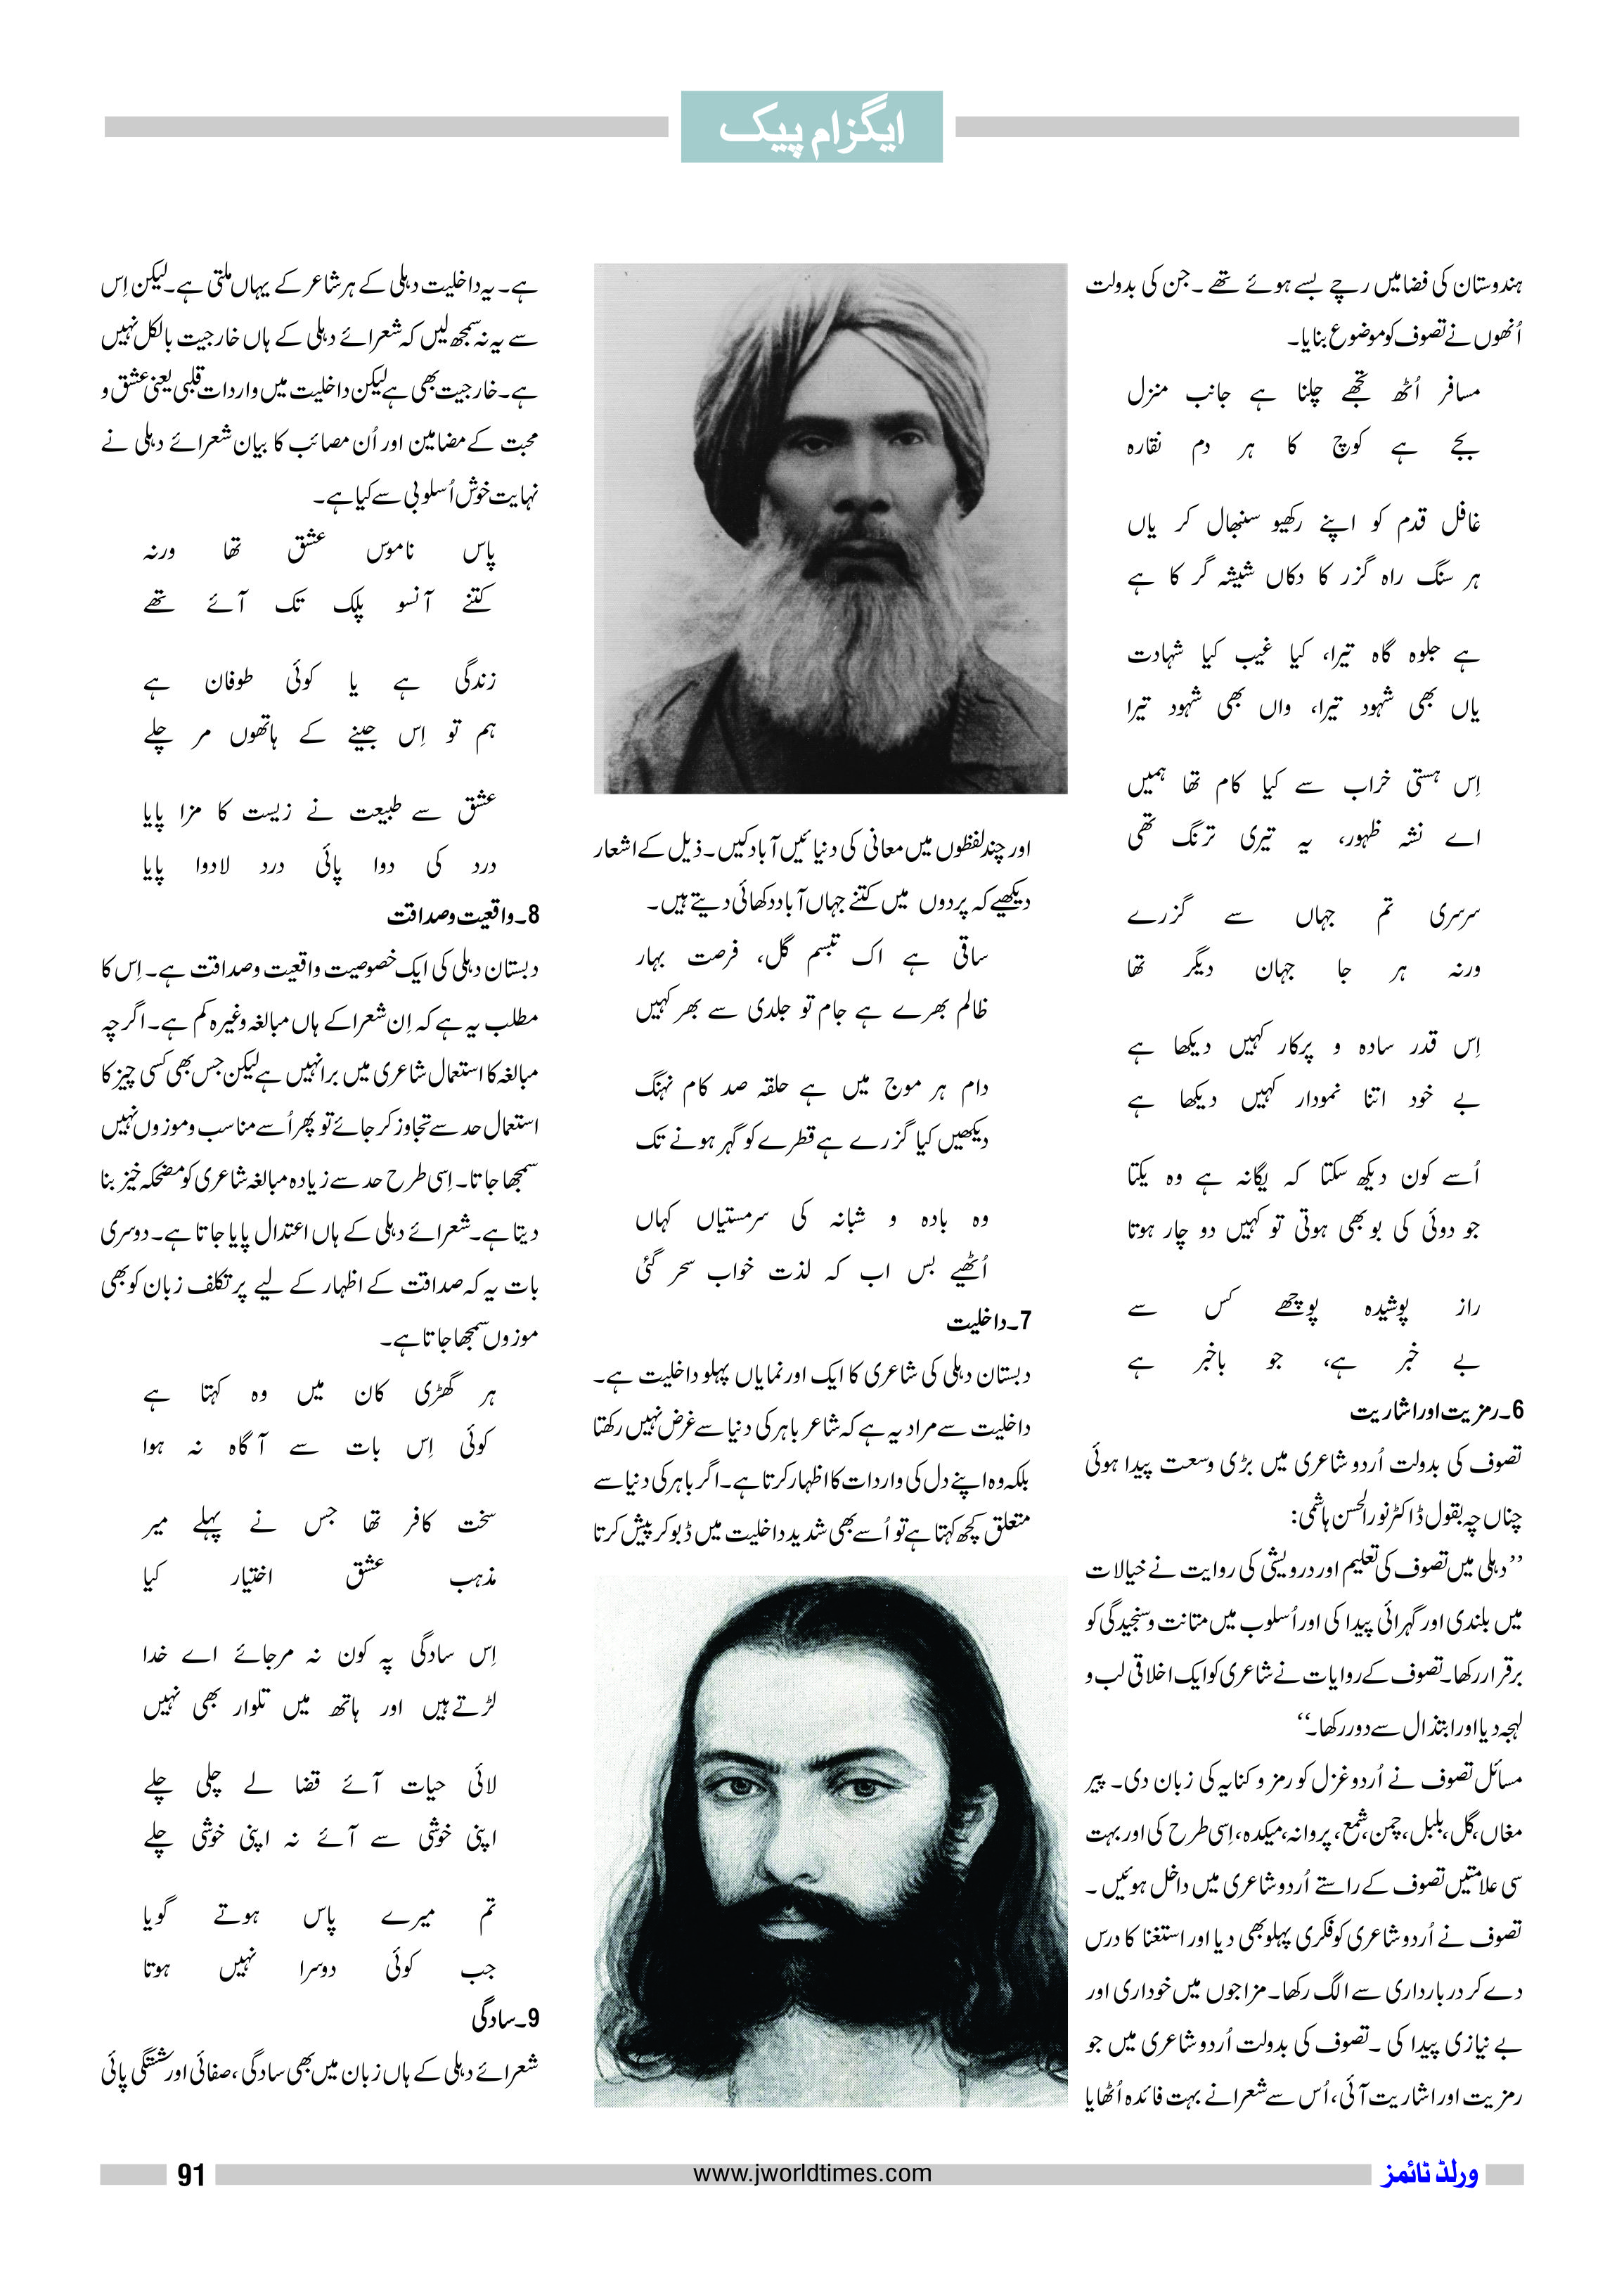 ایگزام پیک
ہندوستان کی فضا میں رچے بسے ہوئے تھے۔ جن کی بدولت
اُنھوں نے تصوف کو موضوع بنایا۔
مسافر اُٹھ تجھے چلنا ہے جانب منزل
بجے ہے کوچ کا ہر دم نقارہ
غافل قدم کو اپنے رکھیو سنبھال کر یاں
ہر سنگ راہ گزر کا دکاں شیشہ گر کا ہے
ہے جلوہ گاہ تیرا، کیا غیب کیا شہادت
یاں بھی شہود تیرا، واں بھی شہود تیرا
اِس ہستی خراب سے کیا کام تھا ہمیں
اے نشہ ظہور، یہ تیری ترنگ تھی
سرسری تم جہاں سے گزرے
ورنہ ہر جا جہان دیگر تھا
اِس قدر سادہ و پرکار کہیں دیکھا ہے
بے خود اتنا نمودار کہیں دیکھا ہے
اُسے کون دیکھ سکتا کہ یگانہ ہے وہ یکتا
جو دوئی کی بو بھی ہوتی تو کہیں دو چار ہوتا
راز پوشیدہ پوچھے کس سے
بے خبر ہے، جو باخبر ہے
6۔رمزیت اور اشاریت
تصوف کی بدولت اُردو شاعری میں بڑی وسعت پیدا ہوئی
چناں چہ بقول ڈاکٹر نورالحسن ہاشمی:
’’دہلی میں تصوف کی تعلیم اور درویشی کی روایت نے خیالات
میں بلندی اور گہرائی پیدا کی اور اُسلوب میں متانت و سنجیدگی کو
برقرار رکھا۔ تصوف کے روایات نے شاعری کو ایک اخلاقی لب و
لہجہ دیا اور ابتذال سے دور رکھا۔‘‘
مسائل تصوف نے اُردو غزل کو رمز و کنایہ کی زبان دی۔ پیر
مغاں، گل، بلبل، چمن، شمع، پروانہ، میکدہ، اِسی طرح کی اور بہت
سی علامتیں تصوف کے راستے اُردو شاعری میں داخل ہوئیں۔
تصوف نے اُردو شاعری کو فکری پہلو بھی دیا اور استغنا کا درس
دے کر دربارداری سے الگ رکھا۔ مزاجوں میں خوداری اور
بے نیازی پیدا کی۔ تصوف کی بدولت اُردو شاعری میں جو
رمزیت اور اشاریت آئی، اُس سے شعرا نے بہت فائدہ اُٹھایا
اور چند لفظوں میں معانی کی دنیائیں آباد کیں۔ ذیل کے اشعار
دیکھیے کہ پردوں میں کتنے جہاں آباد دکھائی دیتے ہیں۔
ساقی ہے اک تبسم گل، فرصت بہار
ظالم بھرے ہے جام تو جلدی سے بھر کہیں
دام ہر موج میں ہے حلقہ صد کام نہنگ
دیکھیں کیا گزرے ہے قطرے کو گہر ہونے تک
وہ بادہ و شبانہ کی سرمستیاں کہاں
اُٹھیے بس اب کہ لذت خواب سحر گئی
7۔داخلیت
دبستان دہلی کی شاعری کا ایک اور نمایاں پہلو داخلیت ہے۔
داخلیت سے مراد یہ ہے کہ شاعر باہر کی دنیا سے غرض نہیں رکھتا
بلکہ وہ اپنے دل کی واردات کا اظہار کرتا ہے۔ اگر باہر کی دنیا سے
متعلق کچھ کہتا ہے تو اُسے بھی شدید داخلیت میں ڈبو کر پیش کرتا
ہے۔ یہ داخلیت دہلی کے ہر شاعر کے یہاں ملتی ہے۔ لیکن اِس
سے یہ نہ سمجھ لیں کہ شعرائے دہلی کے ہاں خارجیت بالکل نہیں
ہے۔ خارجیت بھی ہے لیکن داخلیت میں واردات قلبی یعنی عشق و
محبت کے مضامین اور اُن مصائب کا بیان شعرائے دہلی نے
نہایت خوش اُسلوبی سے کیا ہے۔
پاس ناموس عشق تھا ورنہ
کتنے آنسو پلک تک آئے تھے
زندگی ہے یا کوئی طوفان ہے
ہم تو اِس جینے کے ہاتھوں مر چلے
عشق سے طبیعت نے زیست کا مزا پایا
درد کی دوا پائی درد لادوا پایا
8۔واقعیت و صداقت
دبستان دہلی کی ایک خصوصیت واقعیت و صداقت ہے۔ اِس کا
مطلب یہ ہے کہ اِن شعرا کے ہاں مبالغہ وغیرہ کم ہے۔ اگرچہ
مبالغہ کا استعمال شاعری میں برا نہیں ہے لیکن جس بھی کسی چیز کا
استعمال حد سے تجاوز کر جائے تو پھر اُسے مناسب و موزوں نہیں
سمجھا جاتا۔ اِسی طرح حد سے زیادہ مبالغہ شاعری کو مضحکہ خیز بنا
دیتا ہے۔ شعرائے دہلی کے ہاں اعتدال پایا جاتا ہے۔ دوسری
بات یہ کہ صداقت کے اظہار کے لیے پرتکلف زبان کو بھی
موزوں سمجھا جاتا ہے۔
ہر گھڑی کان میں وہ کہتا ہے
کوئی اِس بات سے آگاہ نہ ہوا
سخت کافر تھا جس نے پہلے میر
مذہب عشق اختیار کیا
اِس سادگی پہ کون نہ مرجائے اے خدا
لڑتے ہیں اور ہاتھ میں تلوار بھی نہیں
لائی حیات آئے قضا لے چلی چلے
اپنی خوشی سے آئے نہ اپنی خوشی چلے
تم میرے پاس ہوتے گویا
جب کوئی دوسرا نہیں ہوتا
9۔سادگی
شعرائے دہلی کے ہاں زبان میں بھی سادگی، صفائی اور شستگی پائی
91
www.jworldtimes.com
ورلڈ ٹائمز